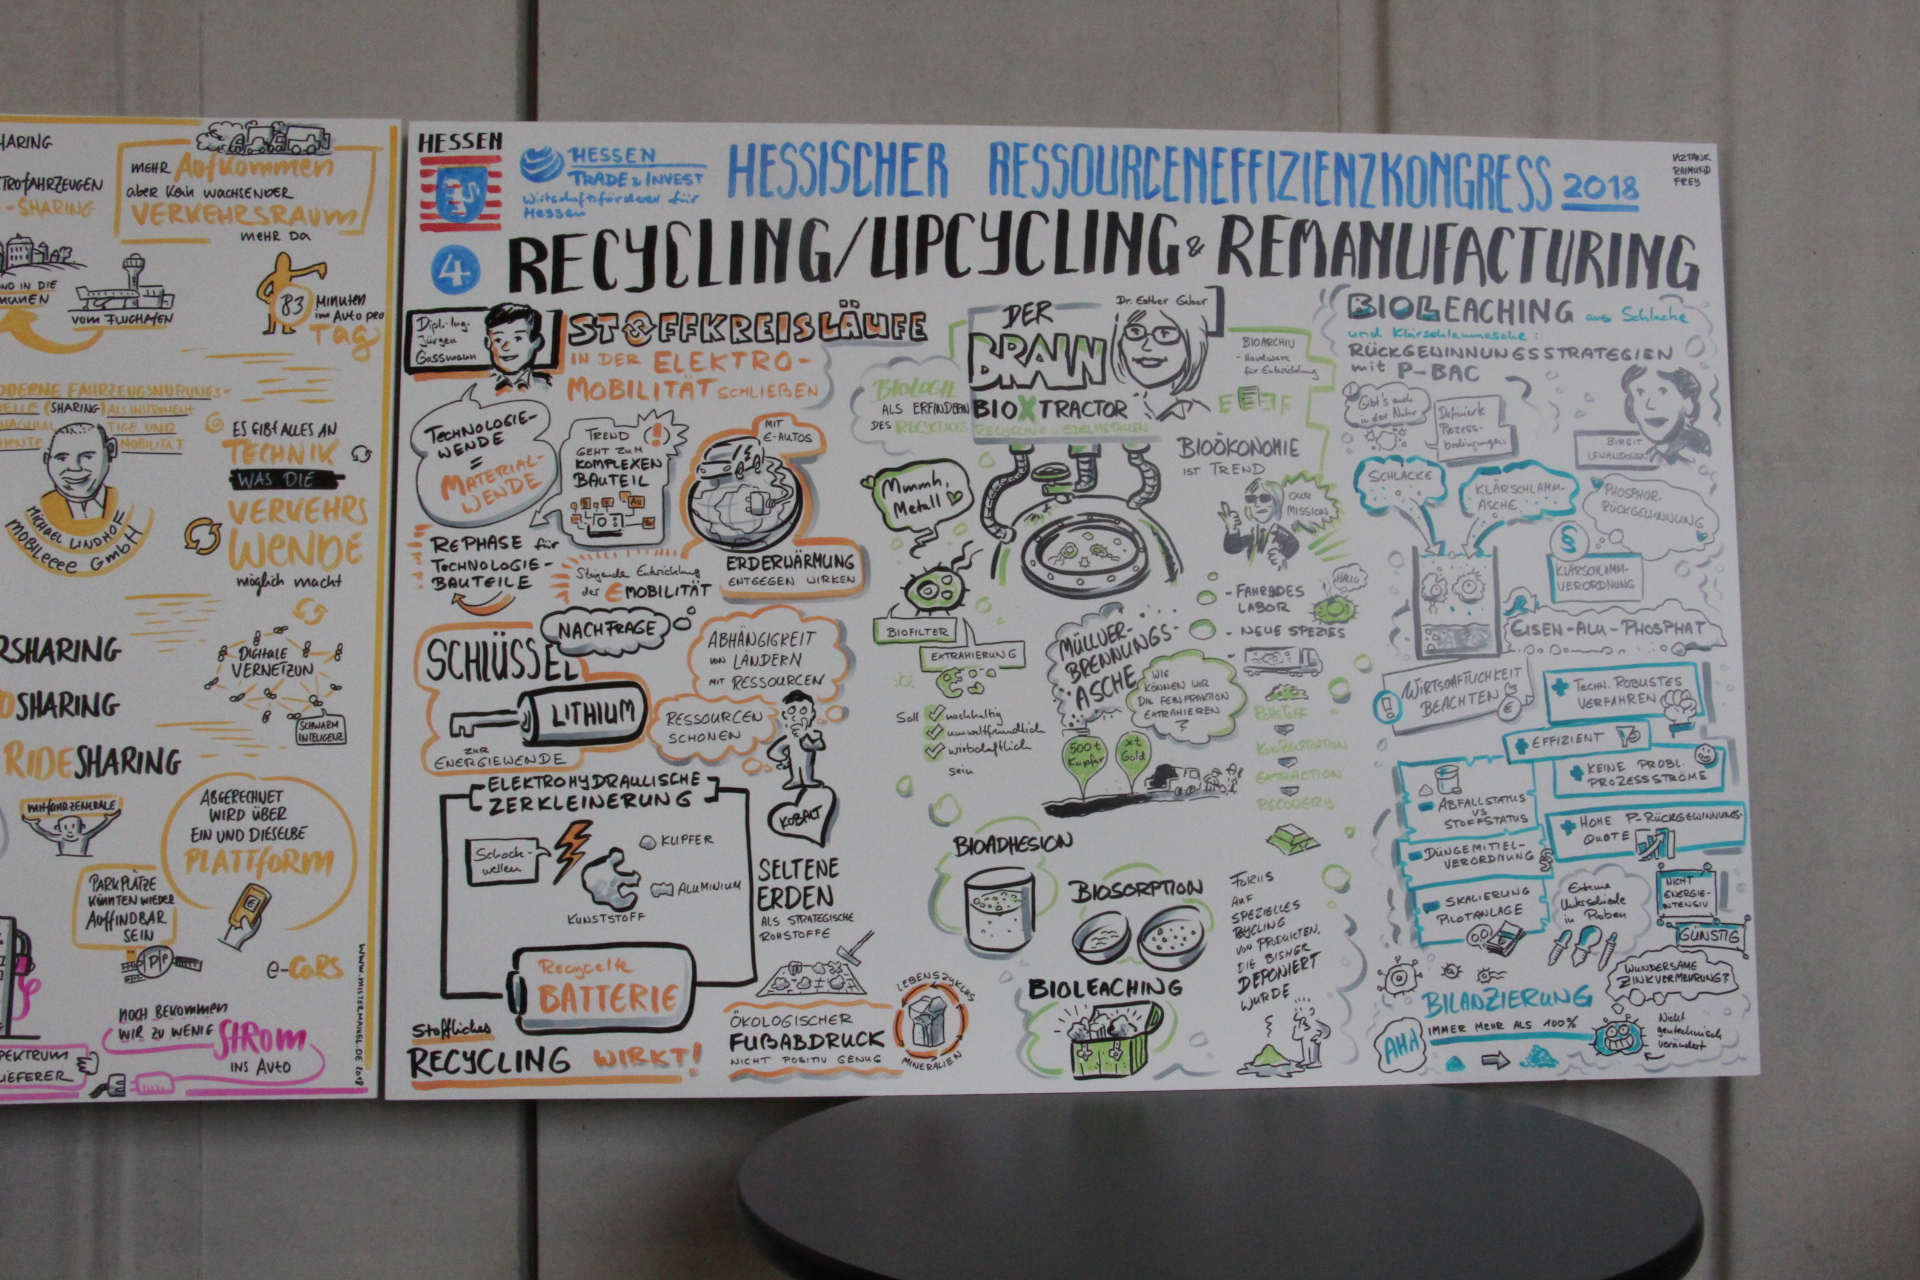 HARING
TROFAHRZEUGEN
-SHARING
MEHR Aufkommen
aber kein WACHSENDER
VERKEHRSRAUM
MEHR DA
ND IN DIE
vom FLUGHAFEN
83
Minuten
im Auto pro
TAG
SHARING
ALS INSTRUMENT
MOBILITÄT
MICHAEL LINDHOF
MOBILEEEE GMBH
ES GIBT ALLES AN
TECHNIK
WAS DIE
VERKEHRS
WENDE
möglich macht
DIGITALE
VERNETZUN
SCHWARM
INTELIGENZ
RSHARING
OSHARING
RIDESHARING
MITFAHRZENTRALE
ABGERECHNET
WIRD ÜBER
EIN UND DIESELBE
PLATTFORM
PARKPLÄTZE
KÖNNTEN WIEDER
AUFFINDBAR
SEIN
e-CARS
NOCH BEKOMMEN
WIR ZU WENIG STROM
INS AUTO
PEKTRUM
LIEFERER
WWW.MISTERMAIKEL.DE 2018
HESSEN
HESSEN
TRADE & INVEST
Wirtschaftsförderer für
Hessen
HESSISCHER RESSOURCENEFFIZIENZKONGRESS 2018
VIZTANK
RAIMUND
FREY
4
RECYCLING/UPCYCLING & REMANUFACTURING
Dipl.-Ing.
Jürgen
Gassmann
STOFFKREISLÄUFE
IN DER ELEKTRO-
MOBILITÄT SCHLIEẞEN
TECHNOLOGIE-
WENDE
=
MATERIAL-
WENDE
TREND
GEHT ZUM
KOMPLEXEN
BAUTEIL
MIT
E-AUTOS
REPHASE für
TECHNOLOGIE-
BAUTEILE
Steigende Entwicklung
der EMOBILITÄT
ERDERWÄRMUNG
ENTGEGEN WIRKEN
SCHLÜSSEL
NACHFRAGE
LITHIUM
ZUR
ENERGIEWENDE
ABHÄNGIGKEIT
VON LÄNDERN
MIT RESSOURCEN
RESSOURCEN
SCHONEN
KOBALT
ELEKTROHYDRAULISCHE
ZERKLEINERUNG
Schock-
wellen
KUPFER
ALUMINIUM
KUNSTSTOFF
Recycelte
BATTERIE
Stoffliches
RECYCLING WIRKT!
SELTENE
ERDEN
ALS STRATEGISCHE
ROHSTOFFE
ÖKOLOGISCHER
FUẞABDRUCK
NICHT POSITIV GENUG
LEBENSZYKLUS
MINERALIEN
DER
BRAIN
BIOXTRACTOR
RECYCLING v. EDELMETALLEN
Dr. Esther Gabor
BIOLOGIE
ALS ERFINDERIN
DES RECYCLINGS
BIOARCHIV
- Hardware
für Entwicklung
BIOÖKONOMIE
IST TREND
OUR
MISSION
Mmmh,
Metall
BIOFILTER
EXTRAHIERUNG
Soll nachhaltig
umweltfreundlich
wirtschaftlich
sein
MÜLLVER-
BRENNUNGS-
ASCHE
WIE
KÖNNEN WIR
DIE FEINFRAKTION
EXTRAHIEREN
?
500t
Kupfer
xt
Gold
- FAHRBARES
LABOR
- NEUE SPEZIES
HALLO
ROHSTOFF
KONZENTRATION
EXTRACTION
RECOVERY
BIOADHESION
BIOSORPTION
BIOLEACHING
FOKUS
AUF
SPEZIELLES
RYCLING
VON PRODUKTEN,
DIE BISHER
DEPONIERT
WURDE
BIOLEACHING aus Schlacke
und Klärschlammasche:
RÜCKGEWINNUNGSSTRATEGIEN
mit P-BAC
Gibt's auch
in der Natur
Definierte
Prozess-
bedingungen
BIRGIT
SCHLACKE
KLÄRSCHLAMM-
ASCHE
PHOSPHOR-
RÜCKGEWINNUNG
§
KLÄRSCHLAMM-
VERORDNUNG
EISEN-ALU-PHOSPHAT
WIRTSCHAFTLICHKEIT
BEACHTEN
€
+ TECHN. ROBUSTES
VERFAHREN
+ EFFIZIENT
+ KEINE PROBL.
PROZESSSTRÖME
+ HOHE P-RÜCKGEWINNUNGS-
QUOTE
- ABFALLSTATUS
VS
STOFFSTATUS
- DÜNGEMITTEL-
VERORDNUNG
- SKALIERUNG
PILOTANLAGE
Extreme
Unterschiede
in Proben
NICHT
ENERGIE-
INTENSIV
GÜNSTIG
BILANZIERUNG
IMMER MEHR ALS 100%
AHA
WUNDERSAME
ZINKVERMEHRUNG?
Nicht
gentechnisch
verändert